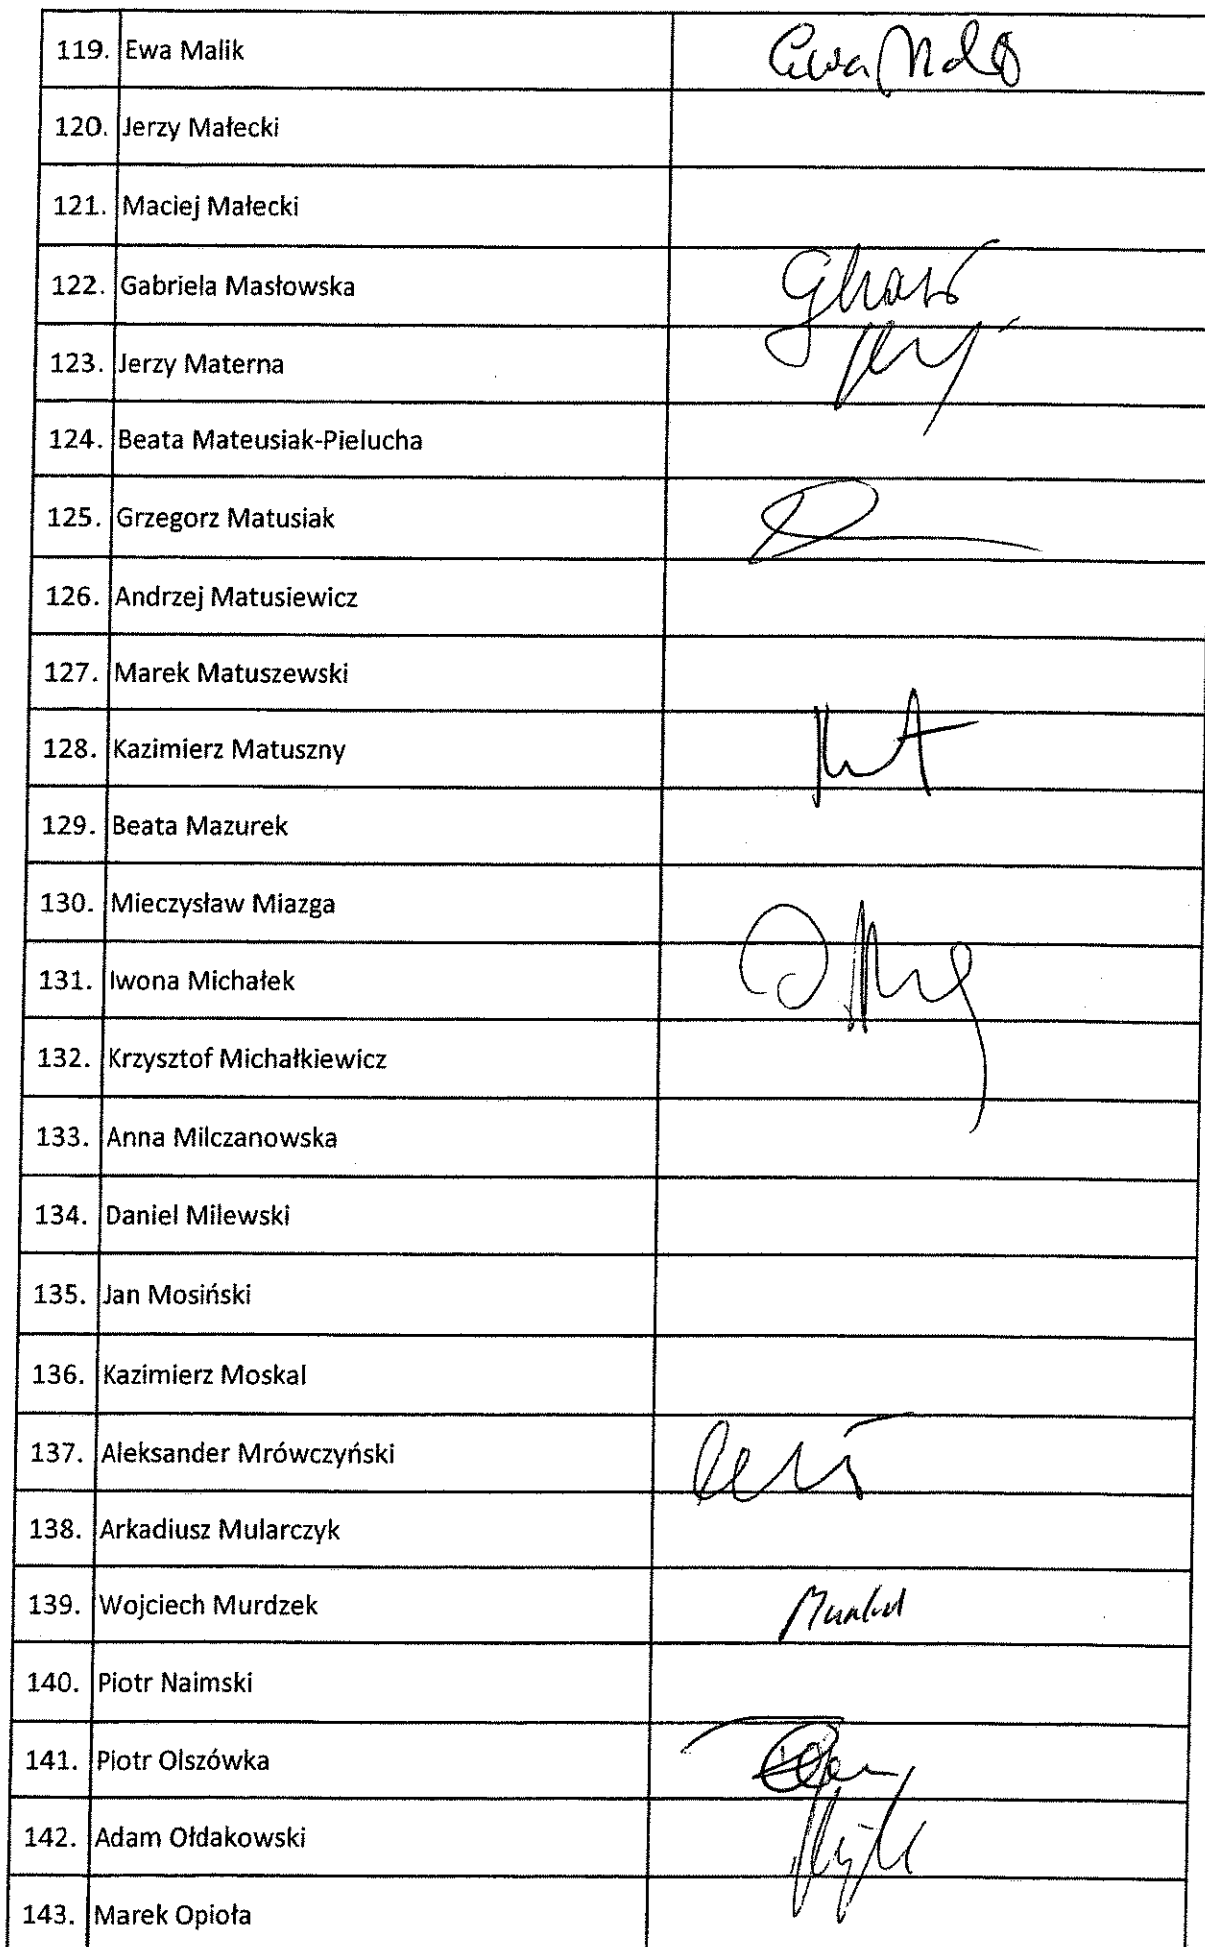 119. Ewa Malik Ewa
120. Jerzy Małecki
121. Maciej Małecki
122. Gabriela Masłowska
123. Jerzy Materna
124. Beata Mateusiak-Pielucha
125. Grzegorz Matusiak
126. Andrzej Matusiewicz
127. Marek Matuszewski
128. Kazimierz Matuszny
129. Beata Mazurek
130. Mieczysław Miazga
131. Iwona Michałek
132. Krzysztof Michałkiewicz
133. Anna Milczanowska
134. Daniel Milewski
135. Jan Mosiński
136. Kazimierz Moskal
137. Aleksander Mrówczyński
138. Arkadiusz Mularczyk
139. Wojciech Murdzek
140. Piotr Naimski
141. Piotr Olszówka
142. Adam Ołdakowski
143. Marek Opioła